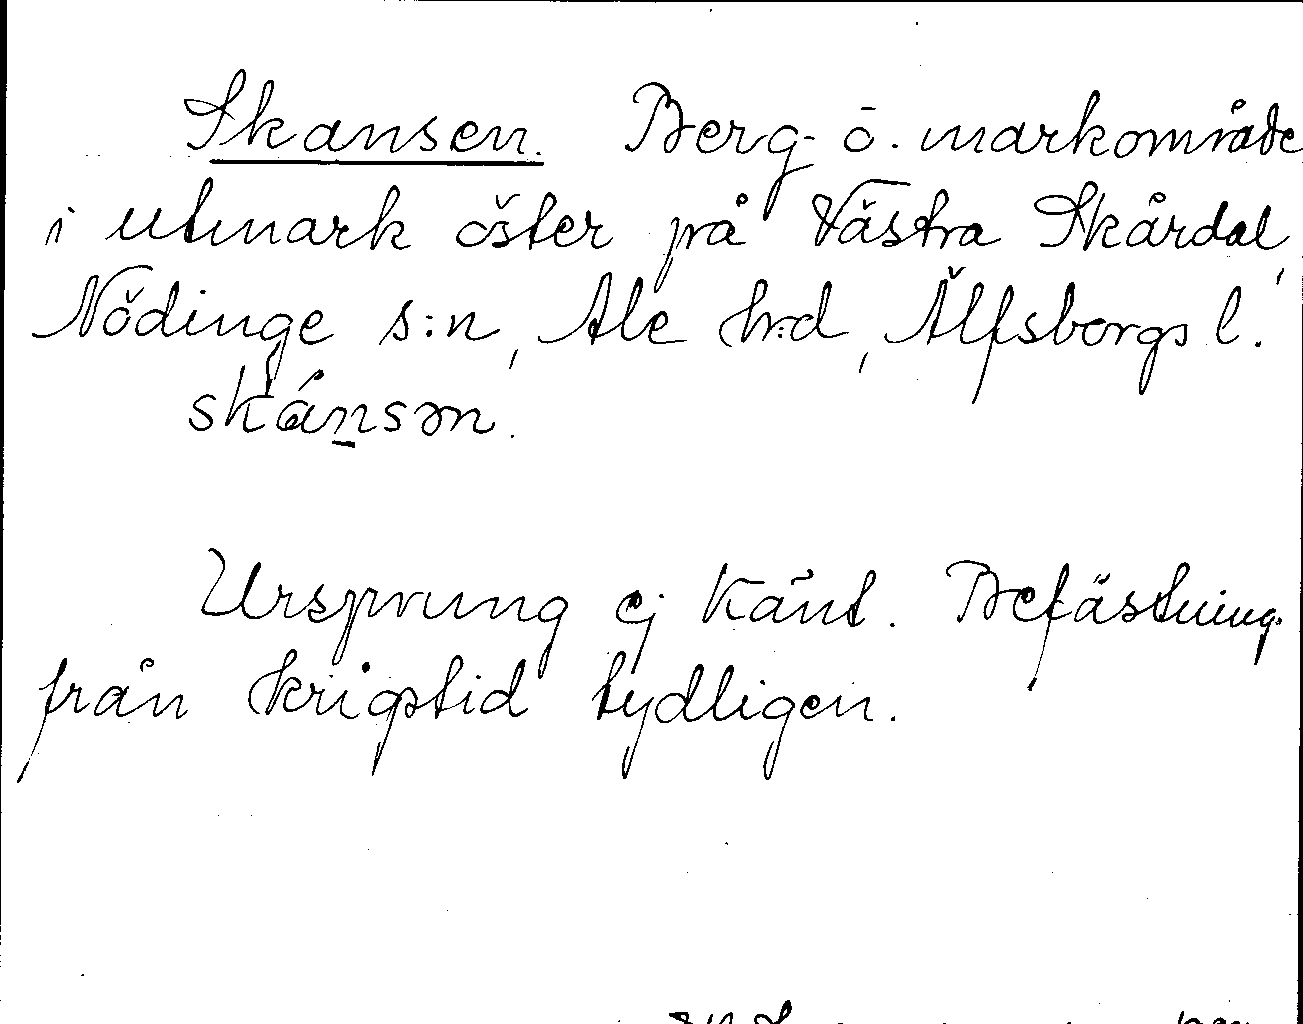 Skansen. Berg- o. markområde
i utmark öster på Västra Skårdal,
Nödinge s:n, Ale h:d, Älfsborgs l.
skánsən.
Ursprung ej känt. Befästning
från krigstid tydligen.